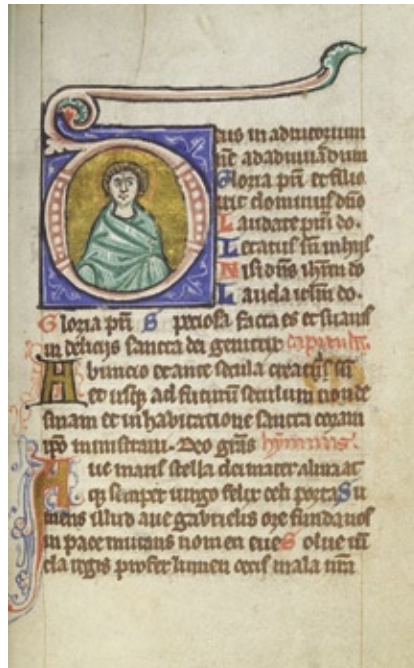 eus in adiutorium
me ad adiuuandum
Gloria pri et filio
dixit dominus dno
Laudate pueri do.
Letatus su in hiis
Nisi dns
Lauda ierlm do.
Gloria pri Speciosa facta es et suauis
in deliciis sancta dei genitrix capitulu.
Ab inicio et ante secula creata su
et usq; ad futurum seculum non de
sinam et in habitatione sancta coram
ipo ministraui. Deo gras hymnus.
Aue maris stella dei mater alma at
q; semper uirgo felix celi porta Su
mens illud aue gabrielis ore funda nos
in pace mutans nomen eue Solue
cla regis profer lumen cecis mala nra